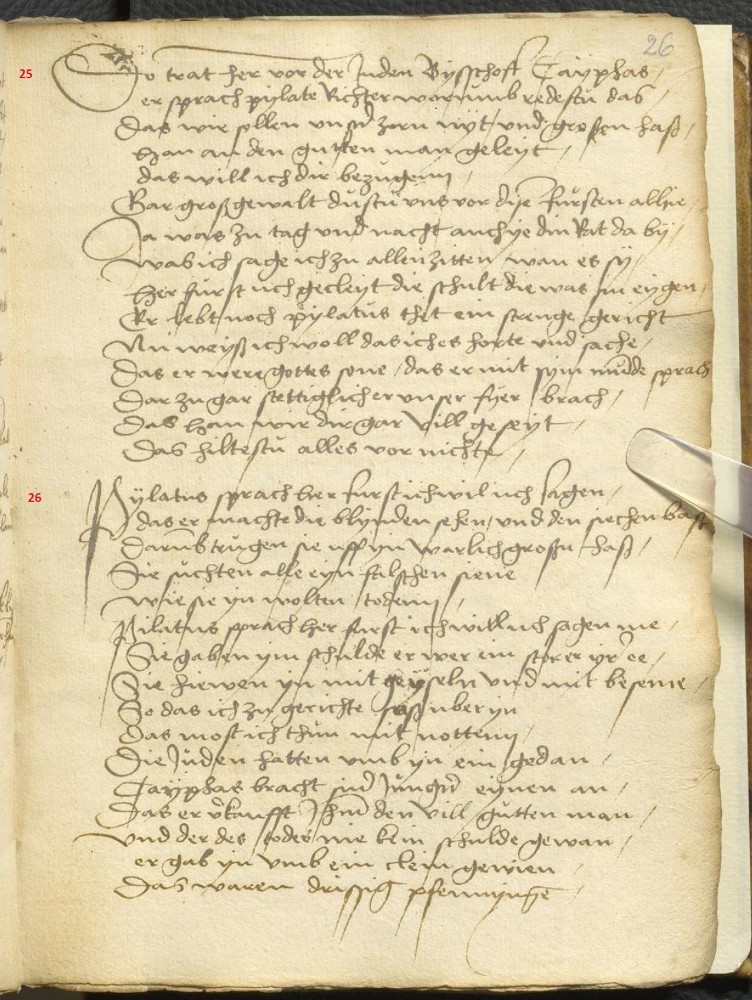 26
25
Do trat her vor der Juden Bysschoff Cayphas /
er sprach pylate Richter warumb redestu das /
Das wir sollen unsern zorn nyt und grossen haß /
han an den gutten man geleyt /
das will ich dir bezugenn /
Gar groß gewalt dustu uns vor dye fursten allye /
Ja was zu tag und nacht auch ye din Rat da by /
was ich sage ich zu allen zitten wan es sy /
Her furst uch gecleyt die schult die was sin eygen /
Er lebt noch pylatus thet ein strenge gericht
Nu weyß ich woll das iches horte und sache /
Das er were gottes sone / das er mit sym munde sprach
Dar zu gar stettiglich er unser fyer brach /
Das han wir dir gar vill geseyt /
Das hiltestu alles vor nichte /
26
Pylatus sprach her furst ich wil uch sagen /
das er machte die blynden sehen / und den siechen bast
Darumb trugen sie uff yn warlich grossn haß /
Die suchten alle eyn falschen siene
wie sie yn wolten todenn /
Pilatus sprach her furst ich will uch sagen me /
Sie gaben ym schulde er wer ein storer yr ee /
Die hiewen yn mit geyseln und mit beseme /
So das ich zu gerichte saß uber yn
Das most ich thun mit nottenn /
Die Juden hatten umb yn ein gedan /
Cayphas bracht siner Jungern eynen an /
Das er verkaufft Jhm den vill gutten man /
Und der des todes nie kein schulde gewan /
er gab yn umb ein clein gewien
Das waren drissig pfennynge /